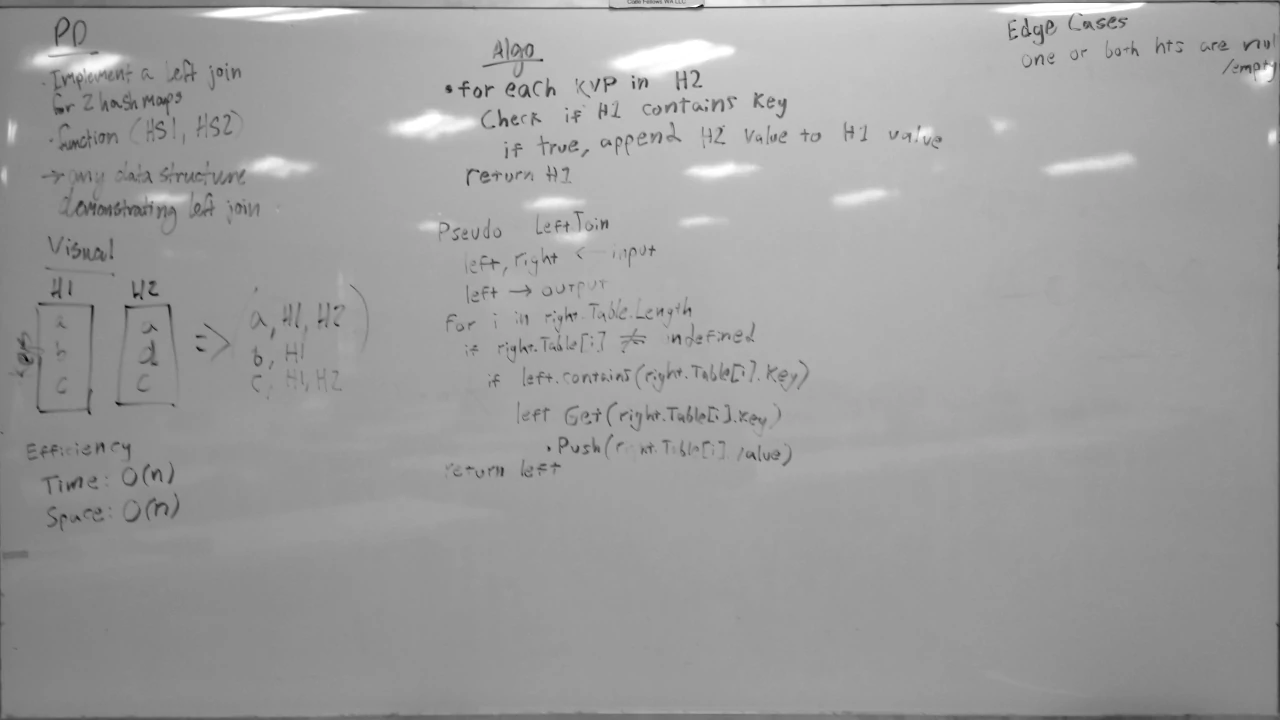 Code Fellows WA LLC
PD
· Implement a left join
for 2 hashmaps
· function (HS1, HS2)
→ any data structure
demonstrating left join
Visual
H1 H2
keys
a a
b d
c c
=>
a, H1, H2
b, H1
c, H1, H2
Efficiency
Time: O(n)
Space: O(n)
Algo
• for each KVP in H2
Check if H1 contains key
if true, append H2 value to H1 value
return H1
Pseudo LeftJoin
left, right <— input
left → output
For i in right.Table.Length
if right.Table[i] ≠ undefined
if left.contains(right.Table[i].key)
left Get(right.Table[i].key)
.Push(right.Table[i].value)
return left
Edge Cases
one or both hts are null
/empty